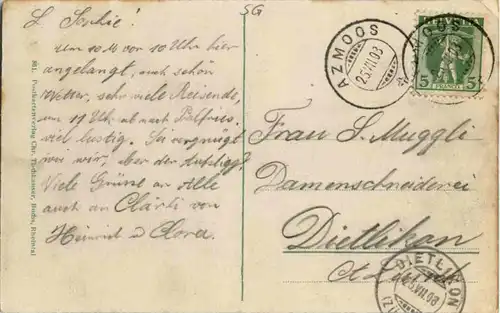 SG
L. Sophie!
Um 10 M vor 10 Uhr hier
angelangt, auch schön
Wetter, sehr viele Reisende,
um 11 Uhr ab nach Palfries.
viel lustig. Sei vergnügt
wie wir, aber der Aufstieg!
Viele Grüsse an Alle
auch an Clärli von
Heinrich & Clara.
881. Postkartenverlag Chr. Tischhauser, Buchs, Rheintal
AZMOOS
25.VII.08
HELVETIA
5
5
FRANCO
AZMOOS
Frau S. Muggli
Damenschneiderei
Dietlikon
DIETLIKON
25.VII.08